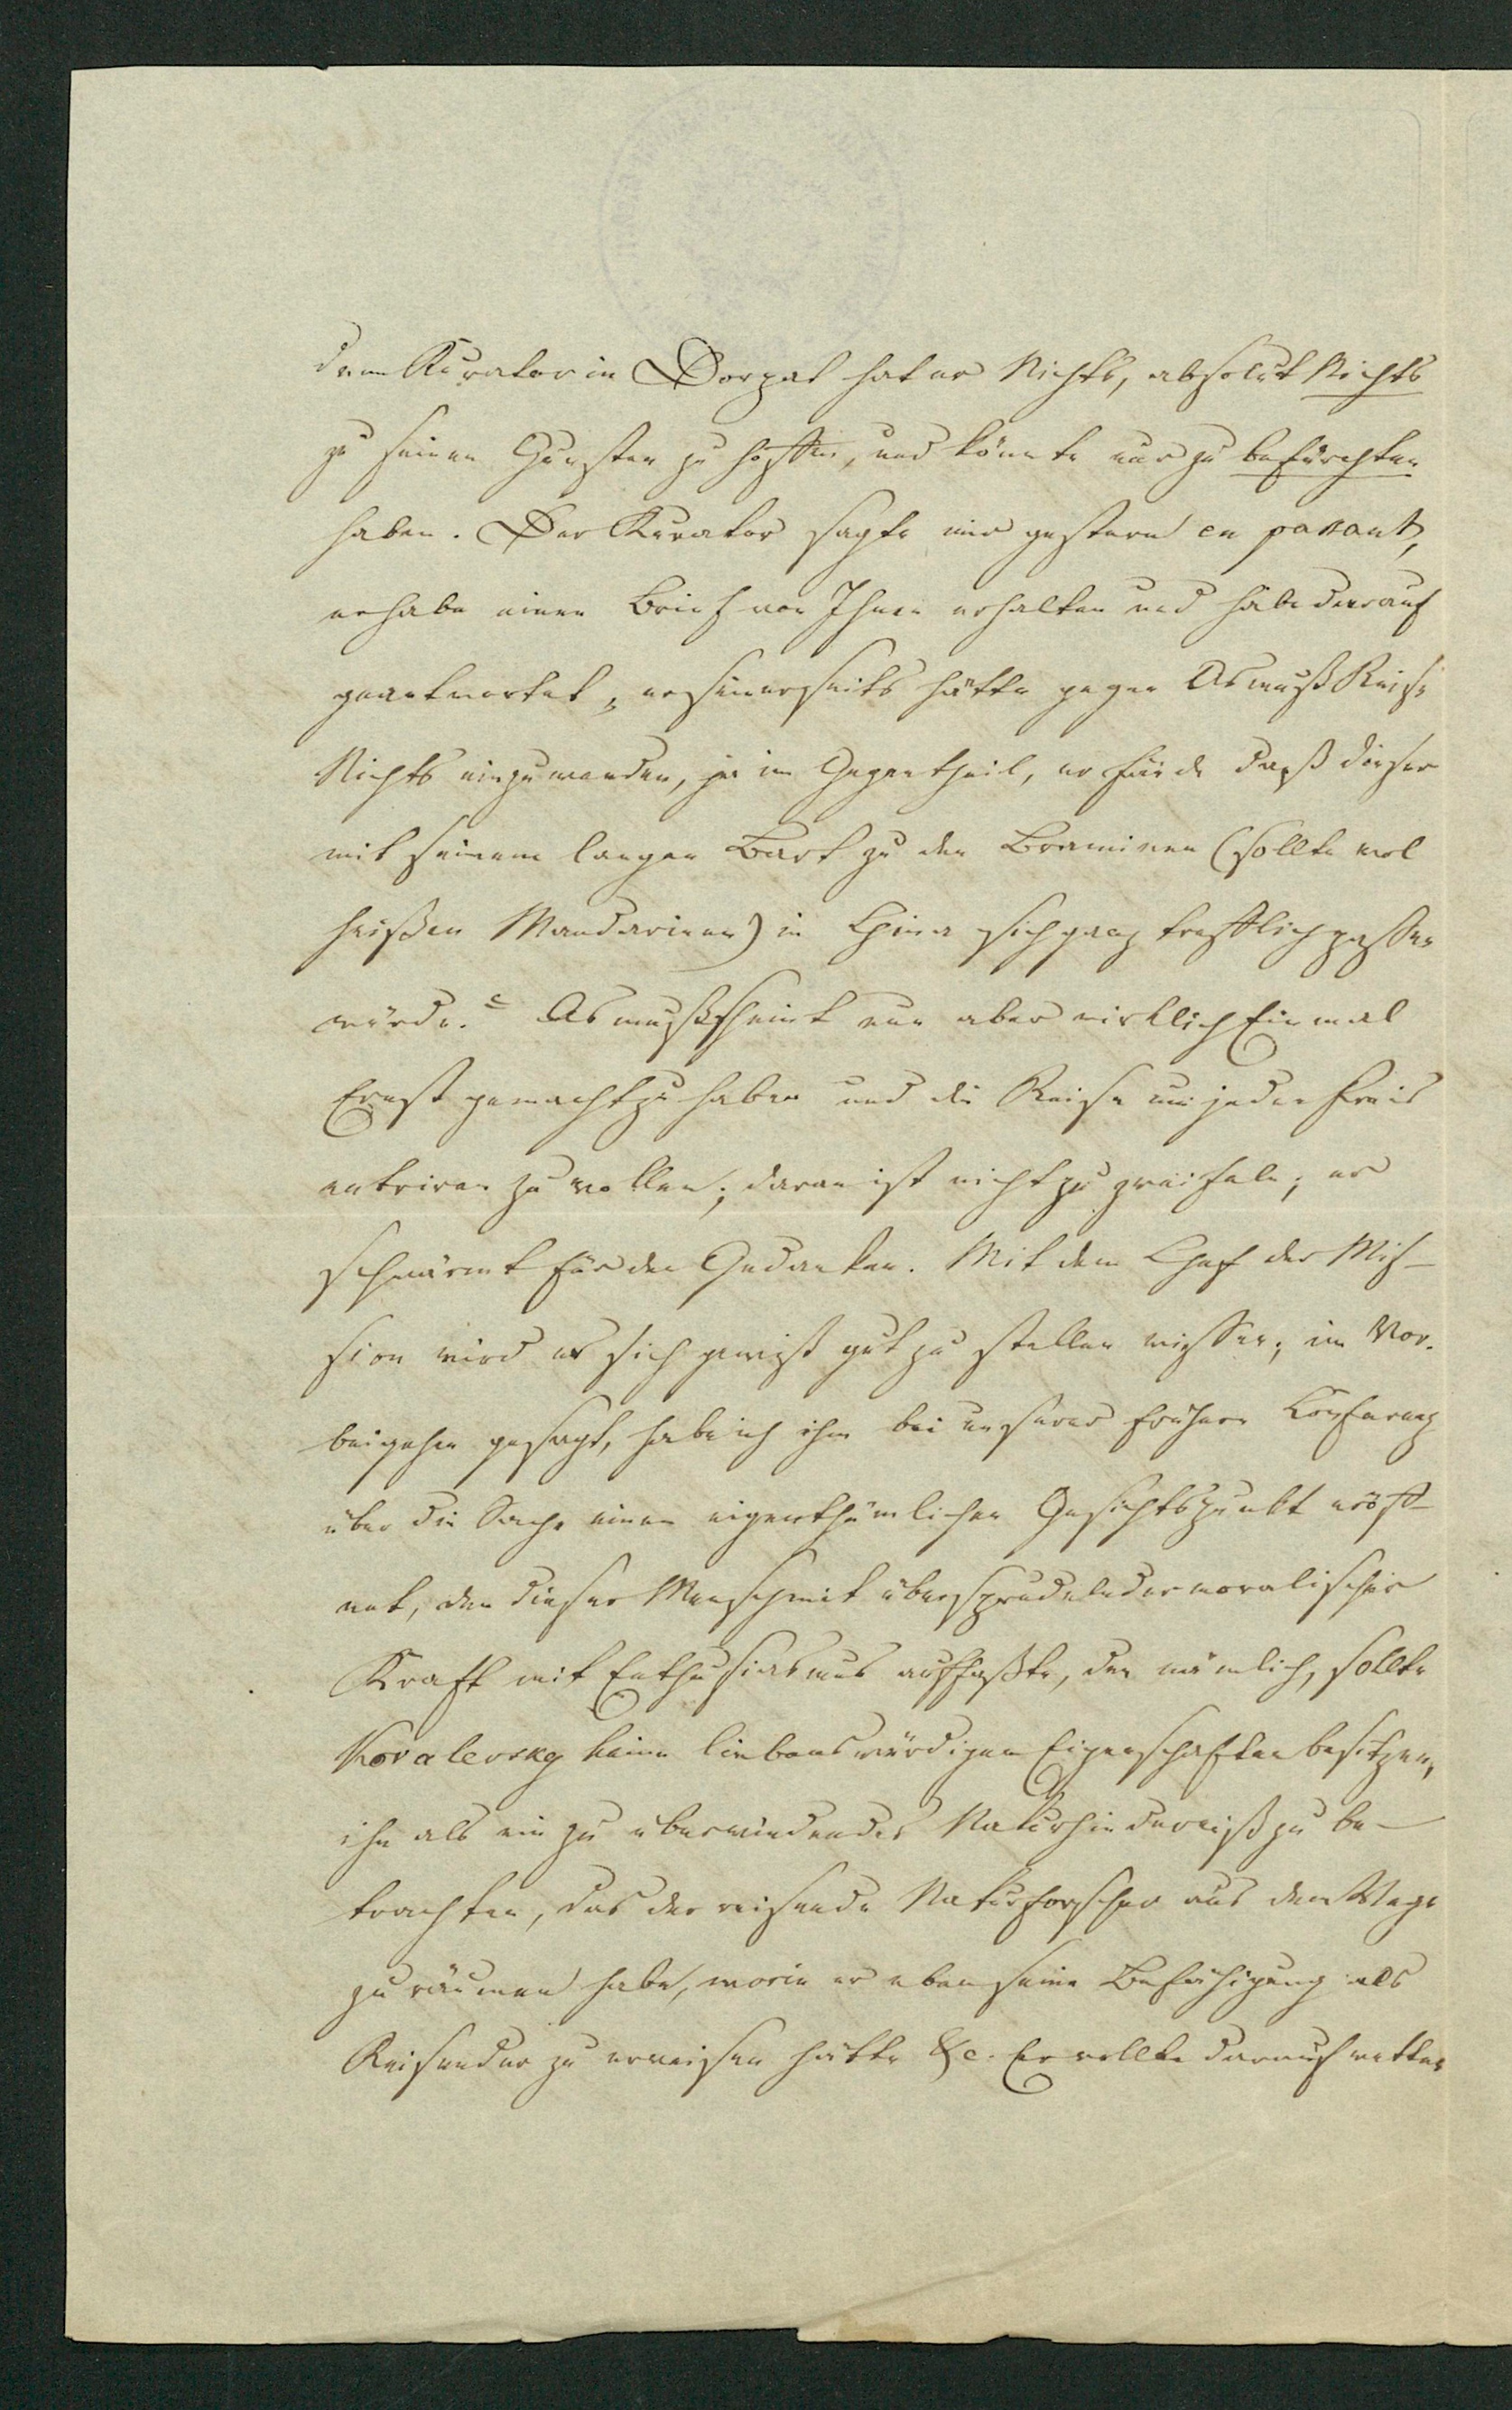 dem Kurator in Dorpat hat er Nichts, absolut Nichts
zu seinen Gunsten zu hoffen, und könnte nur zu befürchten
haben. Der Kurator sagte mir gestern en passant,
er habe einen Brief von Ihnen erhalten und habe darauf
geantwortet „er seinerseits hätte gegen Asmuß Reise
Nichts einzuwenden, ja im Gegentheil, er fände daß dieser
mit seinem langen Bart zu den Braminen (sollte wol
heißen Mandarinen) in China sich ganz trefflich passen
würde.“ Asmuß scheint nun aber wirklich Einmal
Ernst gemacht zu haben und die Reise um jeden Preis
antreten zu wollen; daran ist nicht zu zweifeln; er
schwärmt für den Gedanken. Mit dem Chef der Mis-
sion wird er sich gewiß gut zu stellen wissen; im Vor-
beigehen gesagt, habe ich ihm bei unserer frühern Conferenz
über die Sache einen eigenthümlichen Gesichtspunkt eröff-
net, den dieser Mensch mit übersprudelnder moralischer
Kraft mit Enthusiasmus auffaßte, den nämlich, sollte
Kovalevsky keine liebenswürdigen Eigenschaften besitzen,
ihn als ein zu überwindendes Naturhinderniß zu be-
trachten, das der reisende Naturforscher aus dem Wege
zu räumen habe, worin er eben seine Befähigung als
Reisender zu erweisen hätte &c. Er wollte darauf wetten